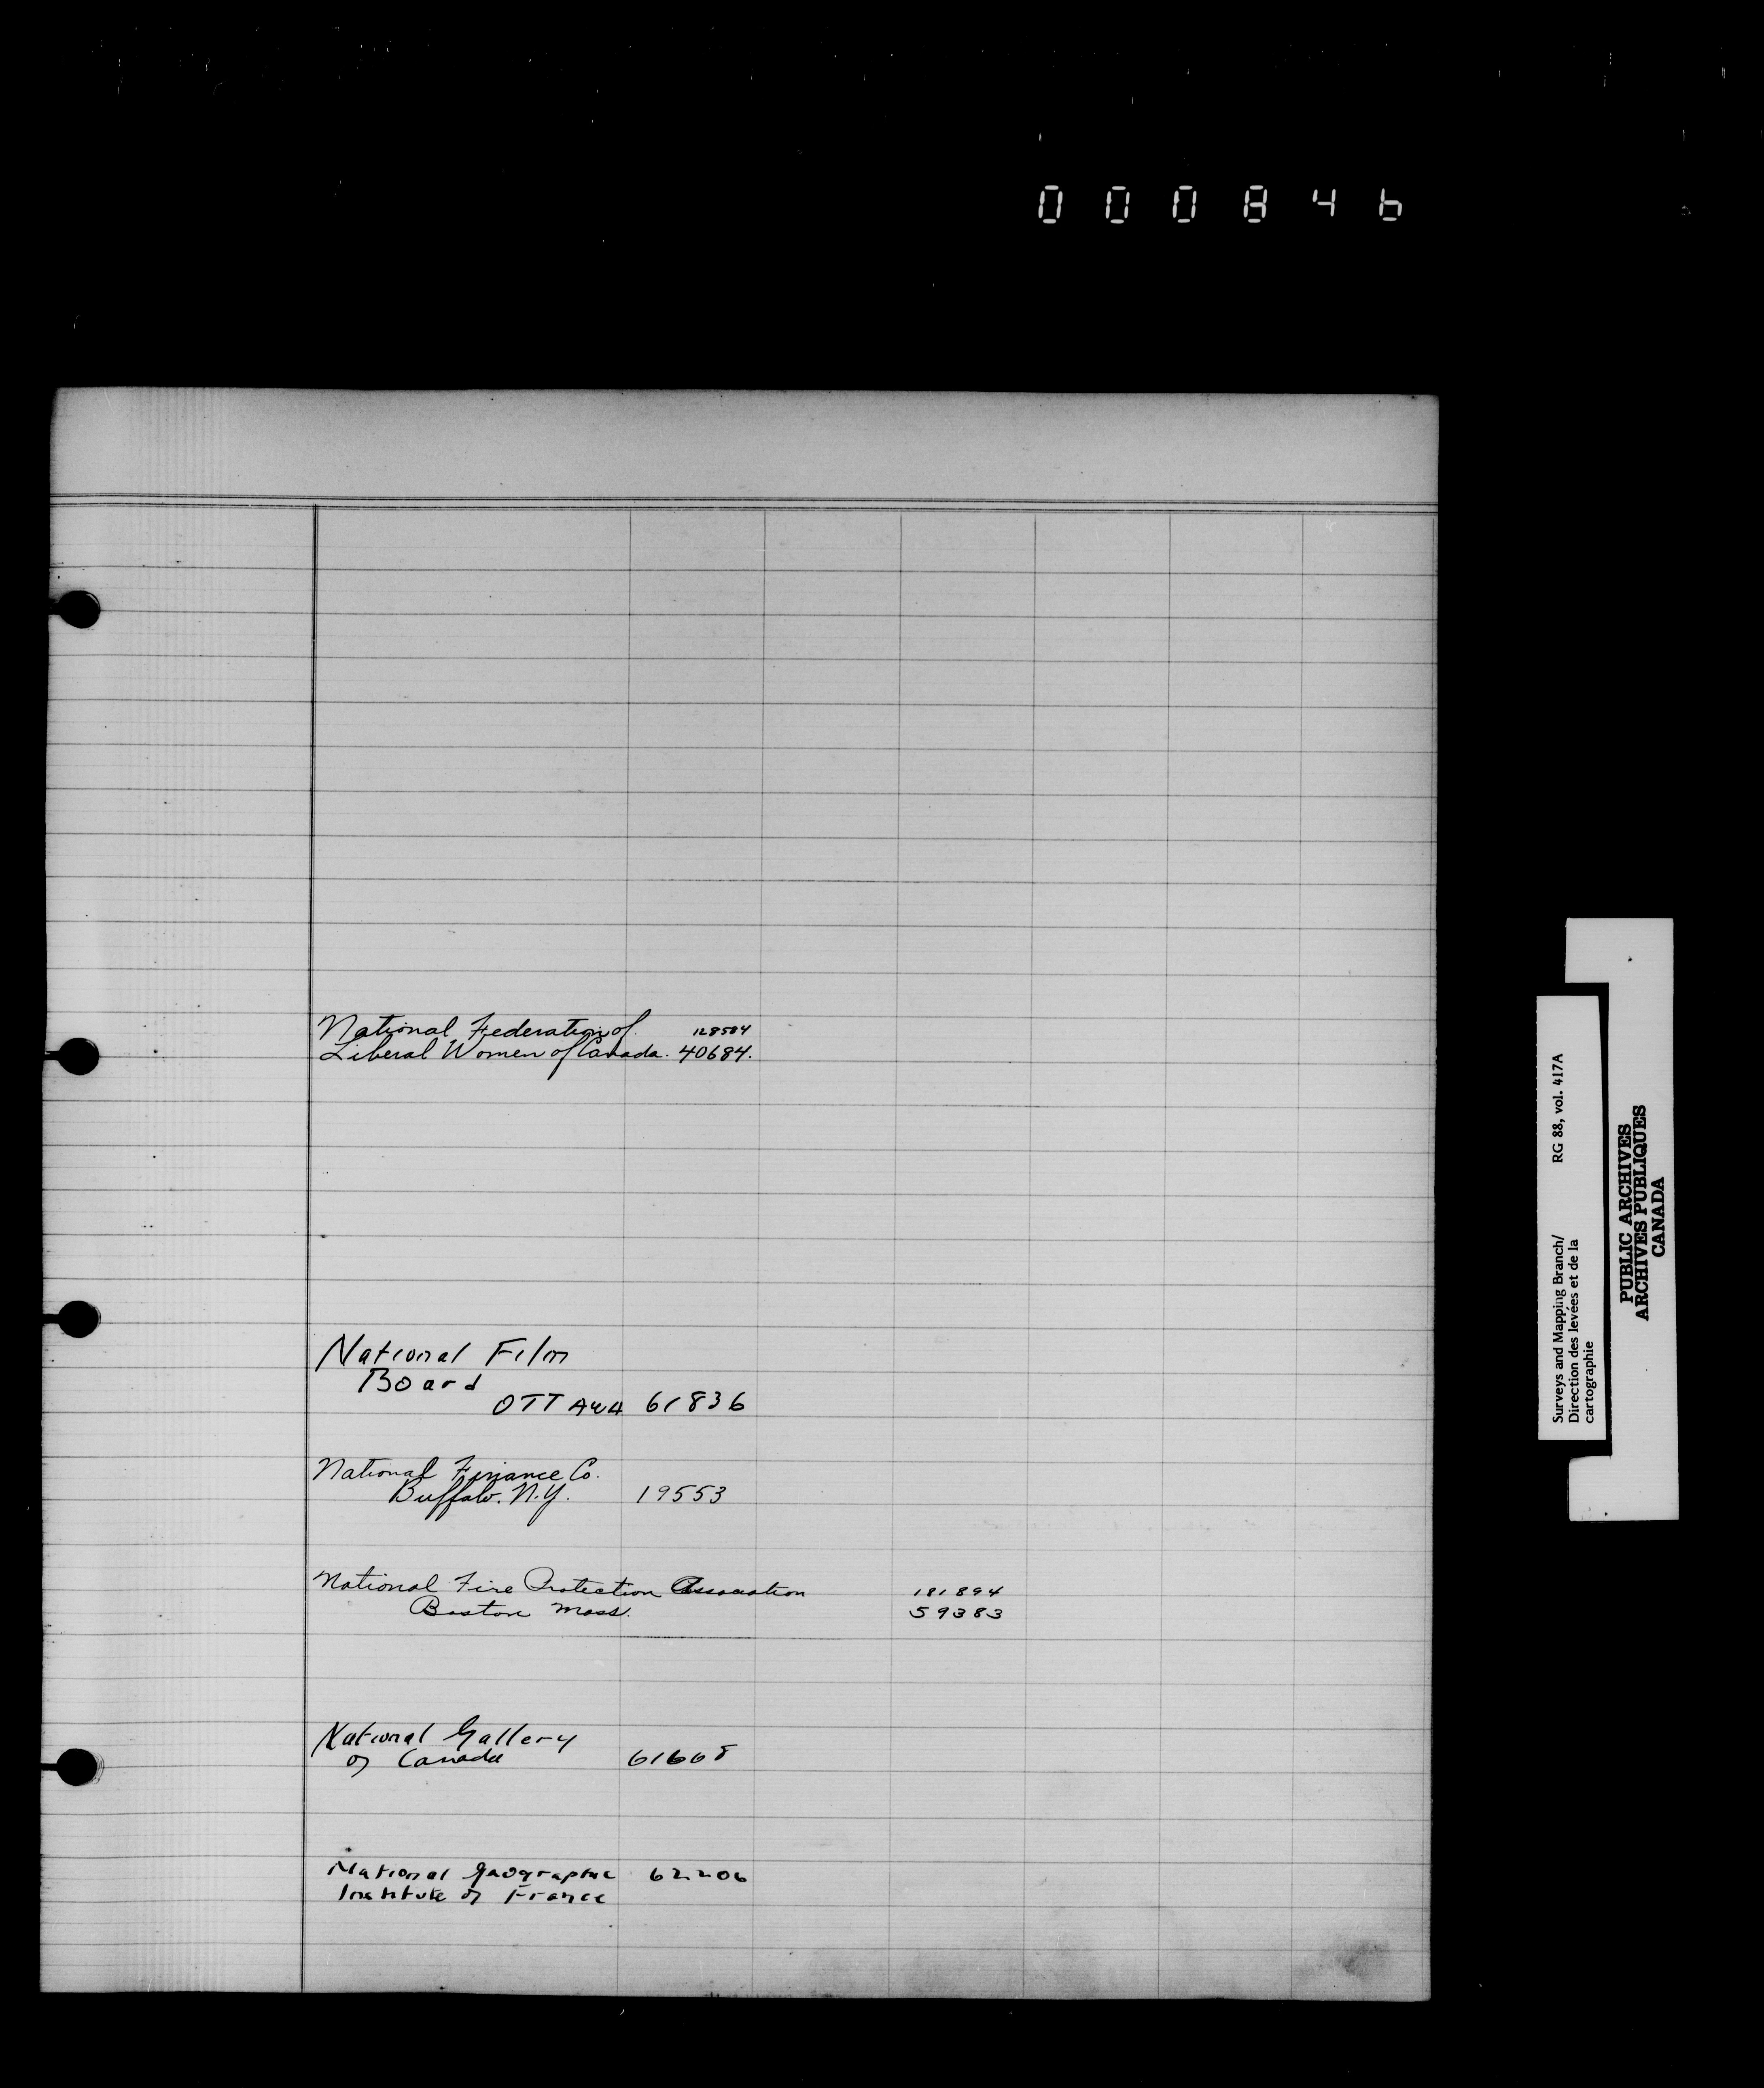 000846
National Federation of 128584
Liberal Women of Canada. 40684.
National Film
Board
OTTAWA 61836
National Finance Co.
Buffalo. N.Y. 19553
National Fire Protection Association 181894
Boston Mass. 59383
National Gallery
of Canada 61668
National Geographic 62206
Institute of France
Surveys and Mapping Branch/ RG 88, vol. 417A
Direction des levées et de la
cartographie
PUBLIC ARCHIVES
ARCHIVES PUBLIQUES
CANADA